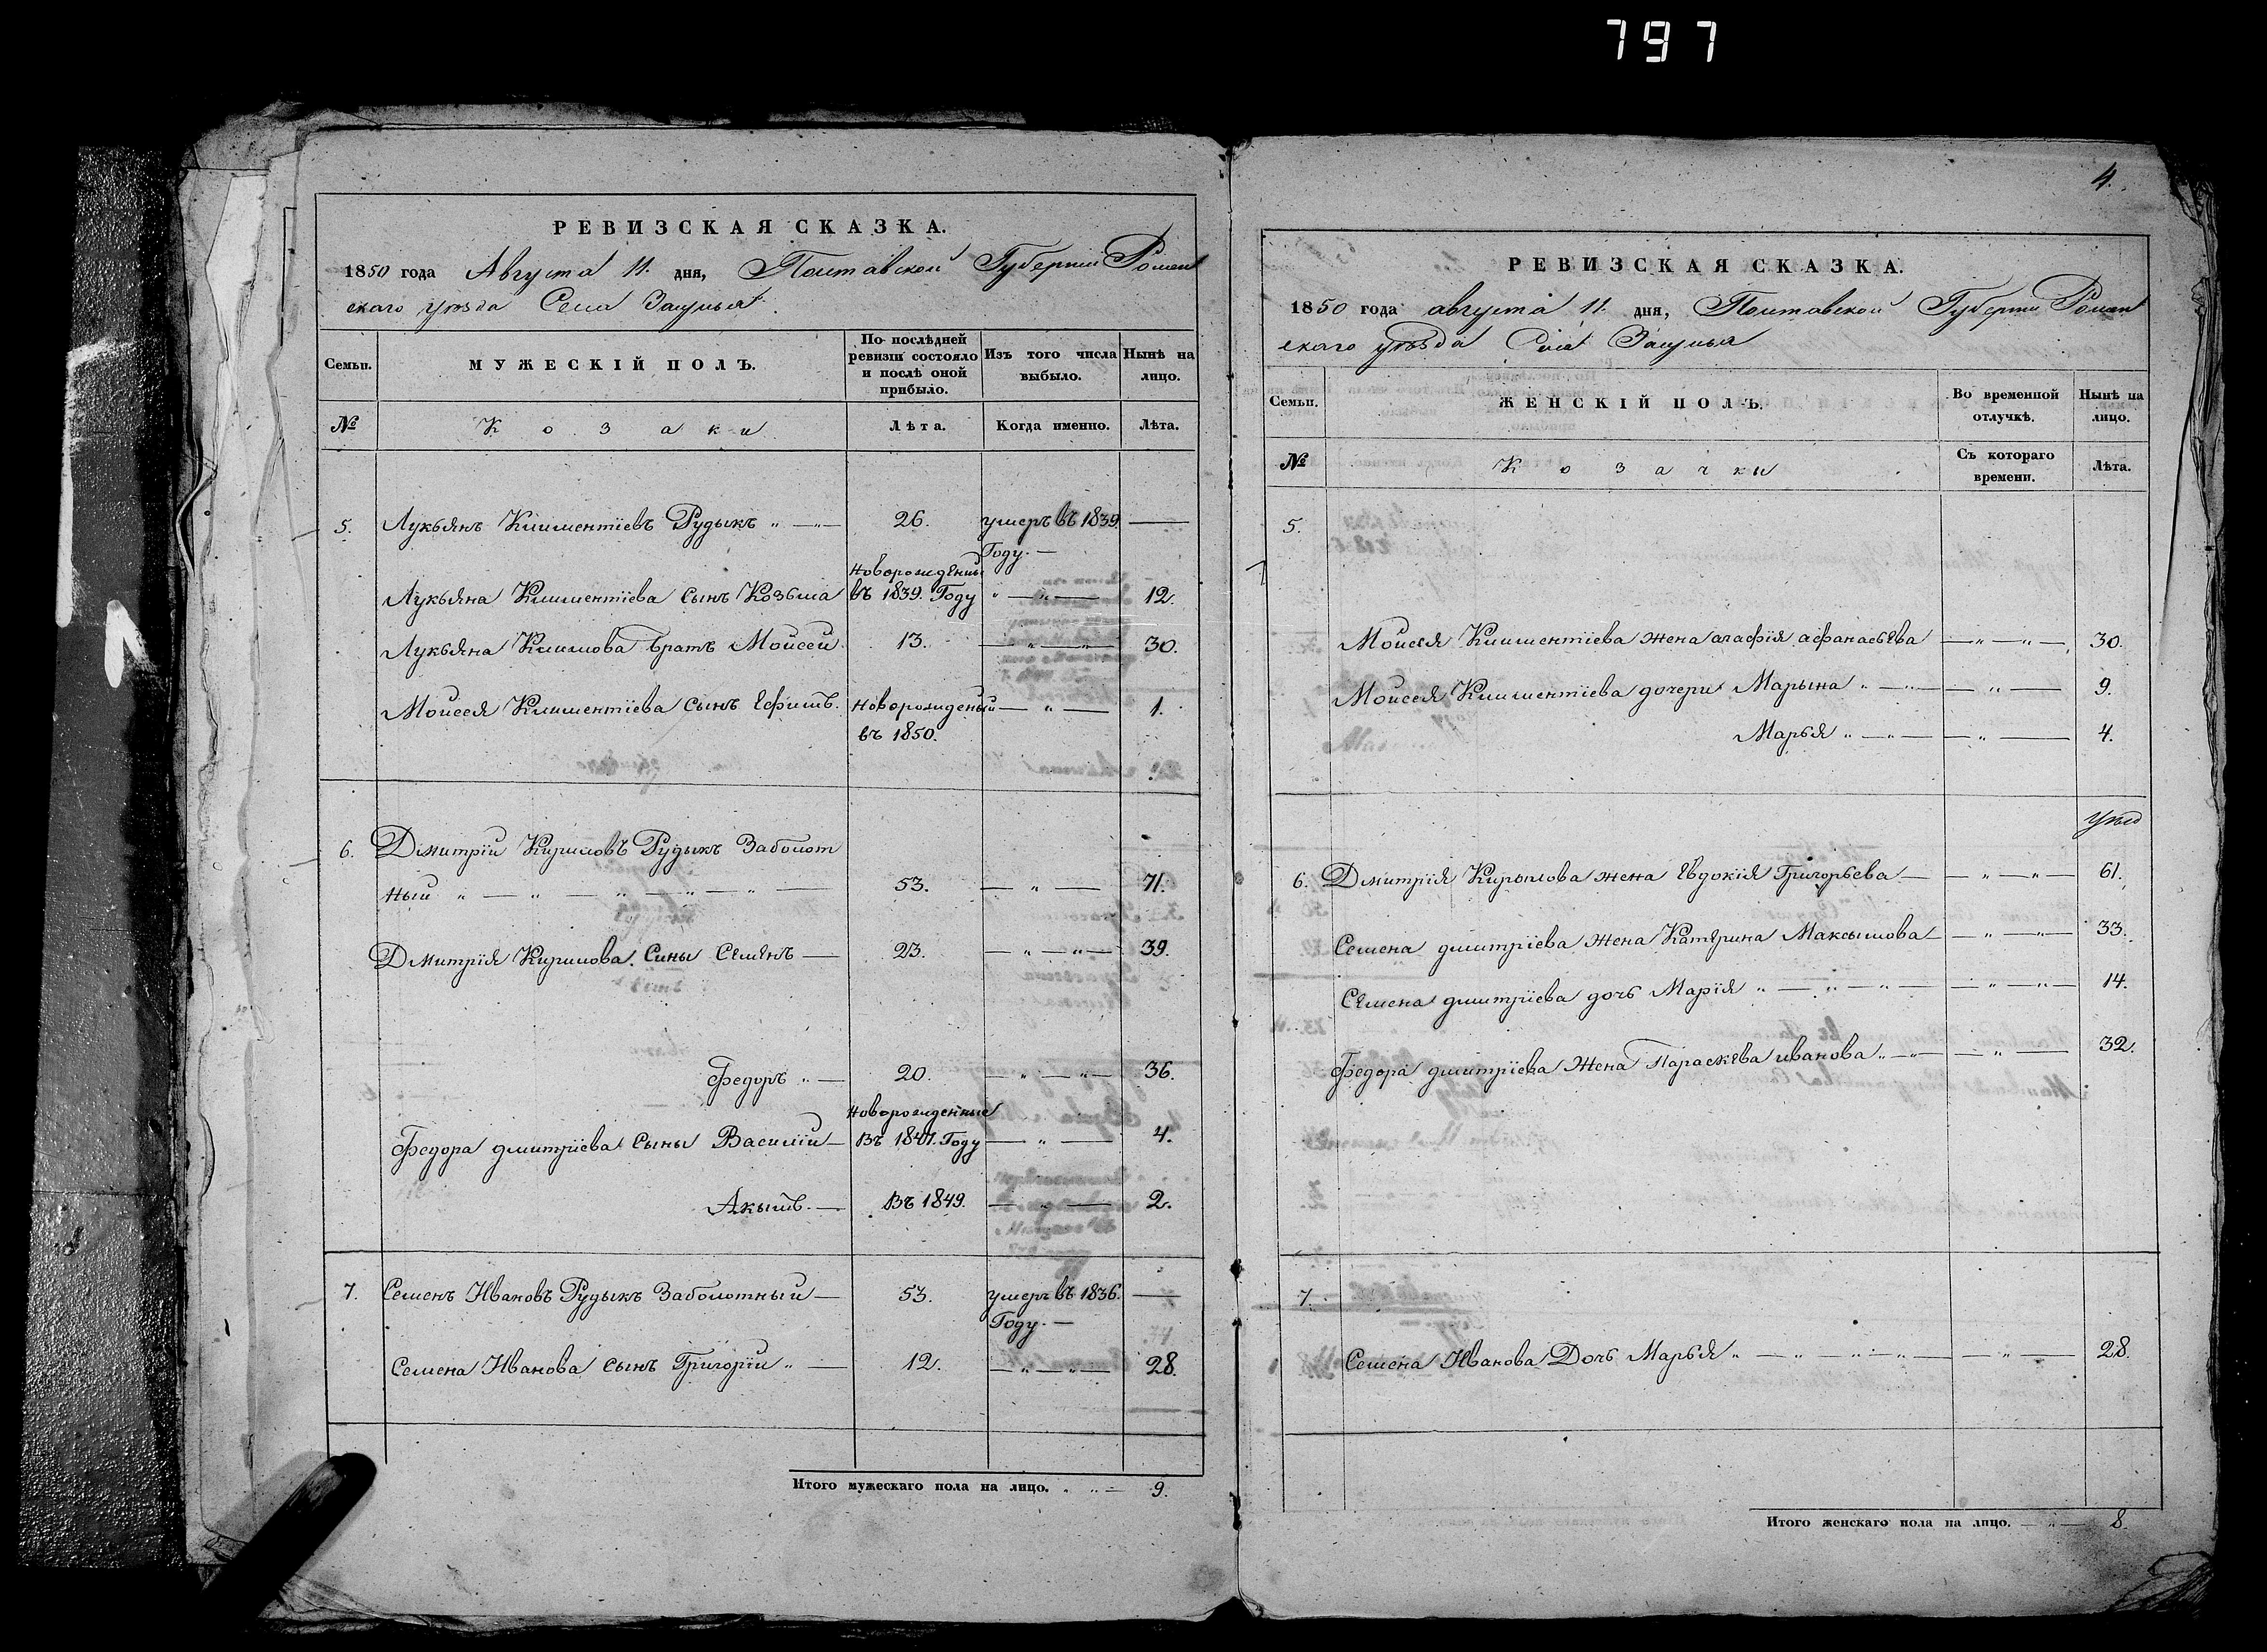 797
РЕВИЗСКАЯ СКАЗКА.
1850 года Августа 11. дня, Полтавской Губернии Ромен
скаго уѣзда Села Засулья
Семьи. МУЖЕСКІЙ ПОЛЪ. По послѣдней ревизіи состояло и послѣ оной прибыло. Изъ того числа выбыло. Нынѣ на лицо.
№ Козаки Лѣта. Когда именно. Лѣта.
5. Лукьянъ Климентіевъ Рудыкъ „ — „ — 26. умеръ въ 1839 Году. — —
Лукьяна Климентіева сынъ Козьма Новорожденный въ 1839. Году „ — „ — 12.
Лукьяна Климова братъ Мойсей 13. — „ — „ — 30.
Мойсея Климентіева сынъ Ефимъ. Новорожденый въ 1850. — „ — 1.
6. Дмитрій Кириловъ Рудыкъ Заболот
ный „ — „ — „ — „ — „ — 53. — „ — 71.
Дмитрія Кирилова. Сины Семенъ — 23. — „ — „ — 39.
Федоръ „ — 20. — „ — „ — 36.
Федора дмитріева сыны Василій — Новорожденные Въ 1847. Году — „ — 4.
Акымъ. — Въ 1849. — „ — 2.
7. Семенъ Ивановъ Рудыкъ Заболотный — 53. умеръ въ 1836. Году. — —
Семена Иванова сынъ Григорій „ — 12. — „ — „ — 28.
Итого мужескаго пола на лицо. „ „ — 9.
4.
РЕВИЗСКАЯ СКАЗКА.
1850 года августа 11. дня, Полтавской Губерніи Ромен
скаго уѣзда Села Засулья
Семьи. ЖЕНСКІЙ ПОЛЪ. Во временной отлучкѣ. Нынѣ на лицо.
№ Козачки Съ котораго времени. Лѣта.
5.
Мойсея Климентіева жена агафія афанасьева — „ — „ — 30.
Мойсея Климентіева дочери Марына „ — „ — — „ — 9.
Марья „ — „ — — „ — 4.
6. Дмитрія Кирылова жена Евдокія Григорьева — — „ — „ — 61.
Семена дмитріева жена Катерина Максымова — — „ — „ — 33.
Семена дмитріева дочь Марія „ — „ — „ — — „ — „ — 14.
Федора дмитріева Жена Параскева иванова „ — „ — — „ — 32.
7.
Семена Иванова Дочь Марья „ — „ — „ — „ — — „ — 28.
Итого женскаго пола на лицо. — „ — 8.